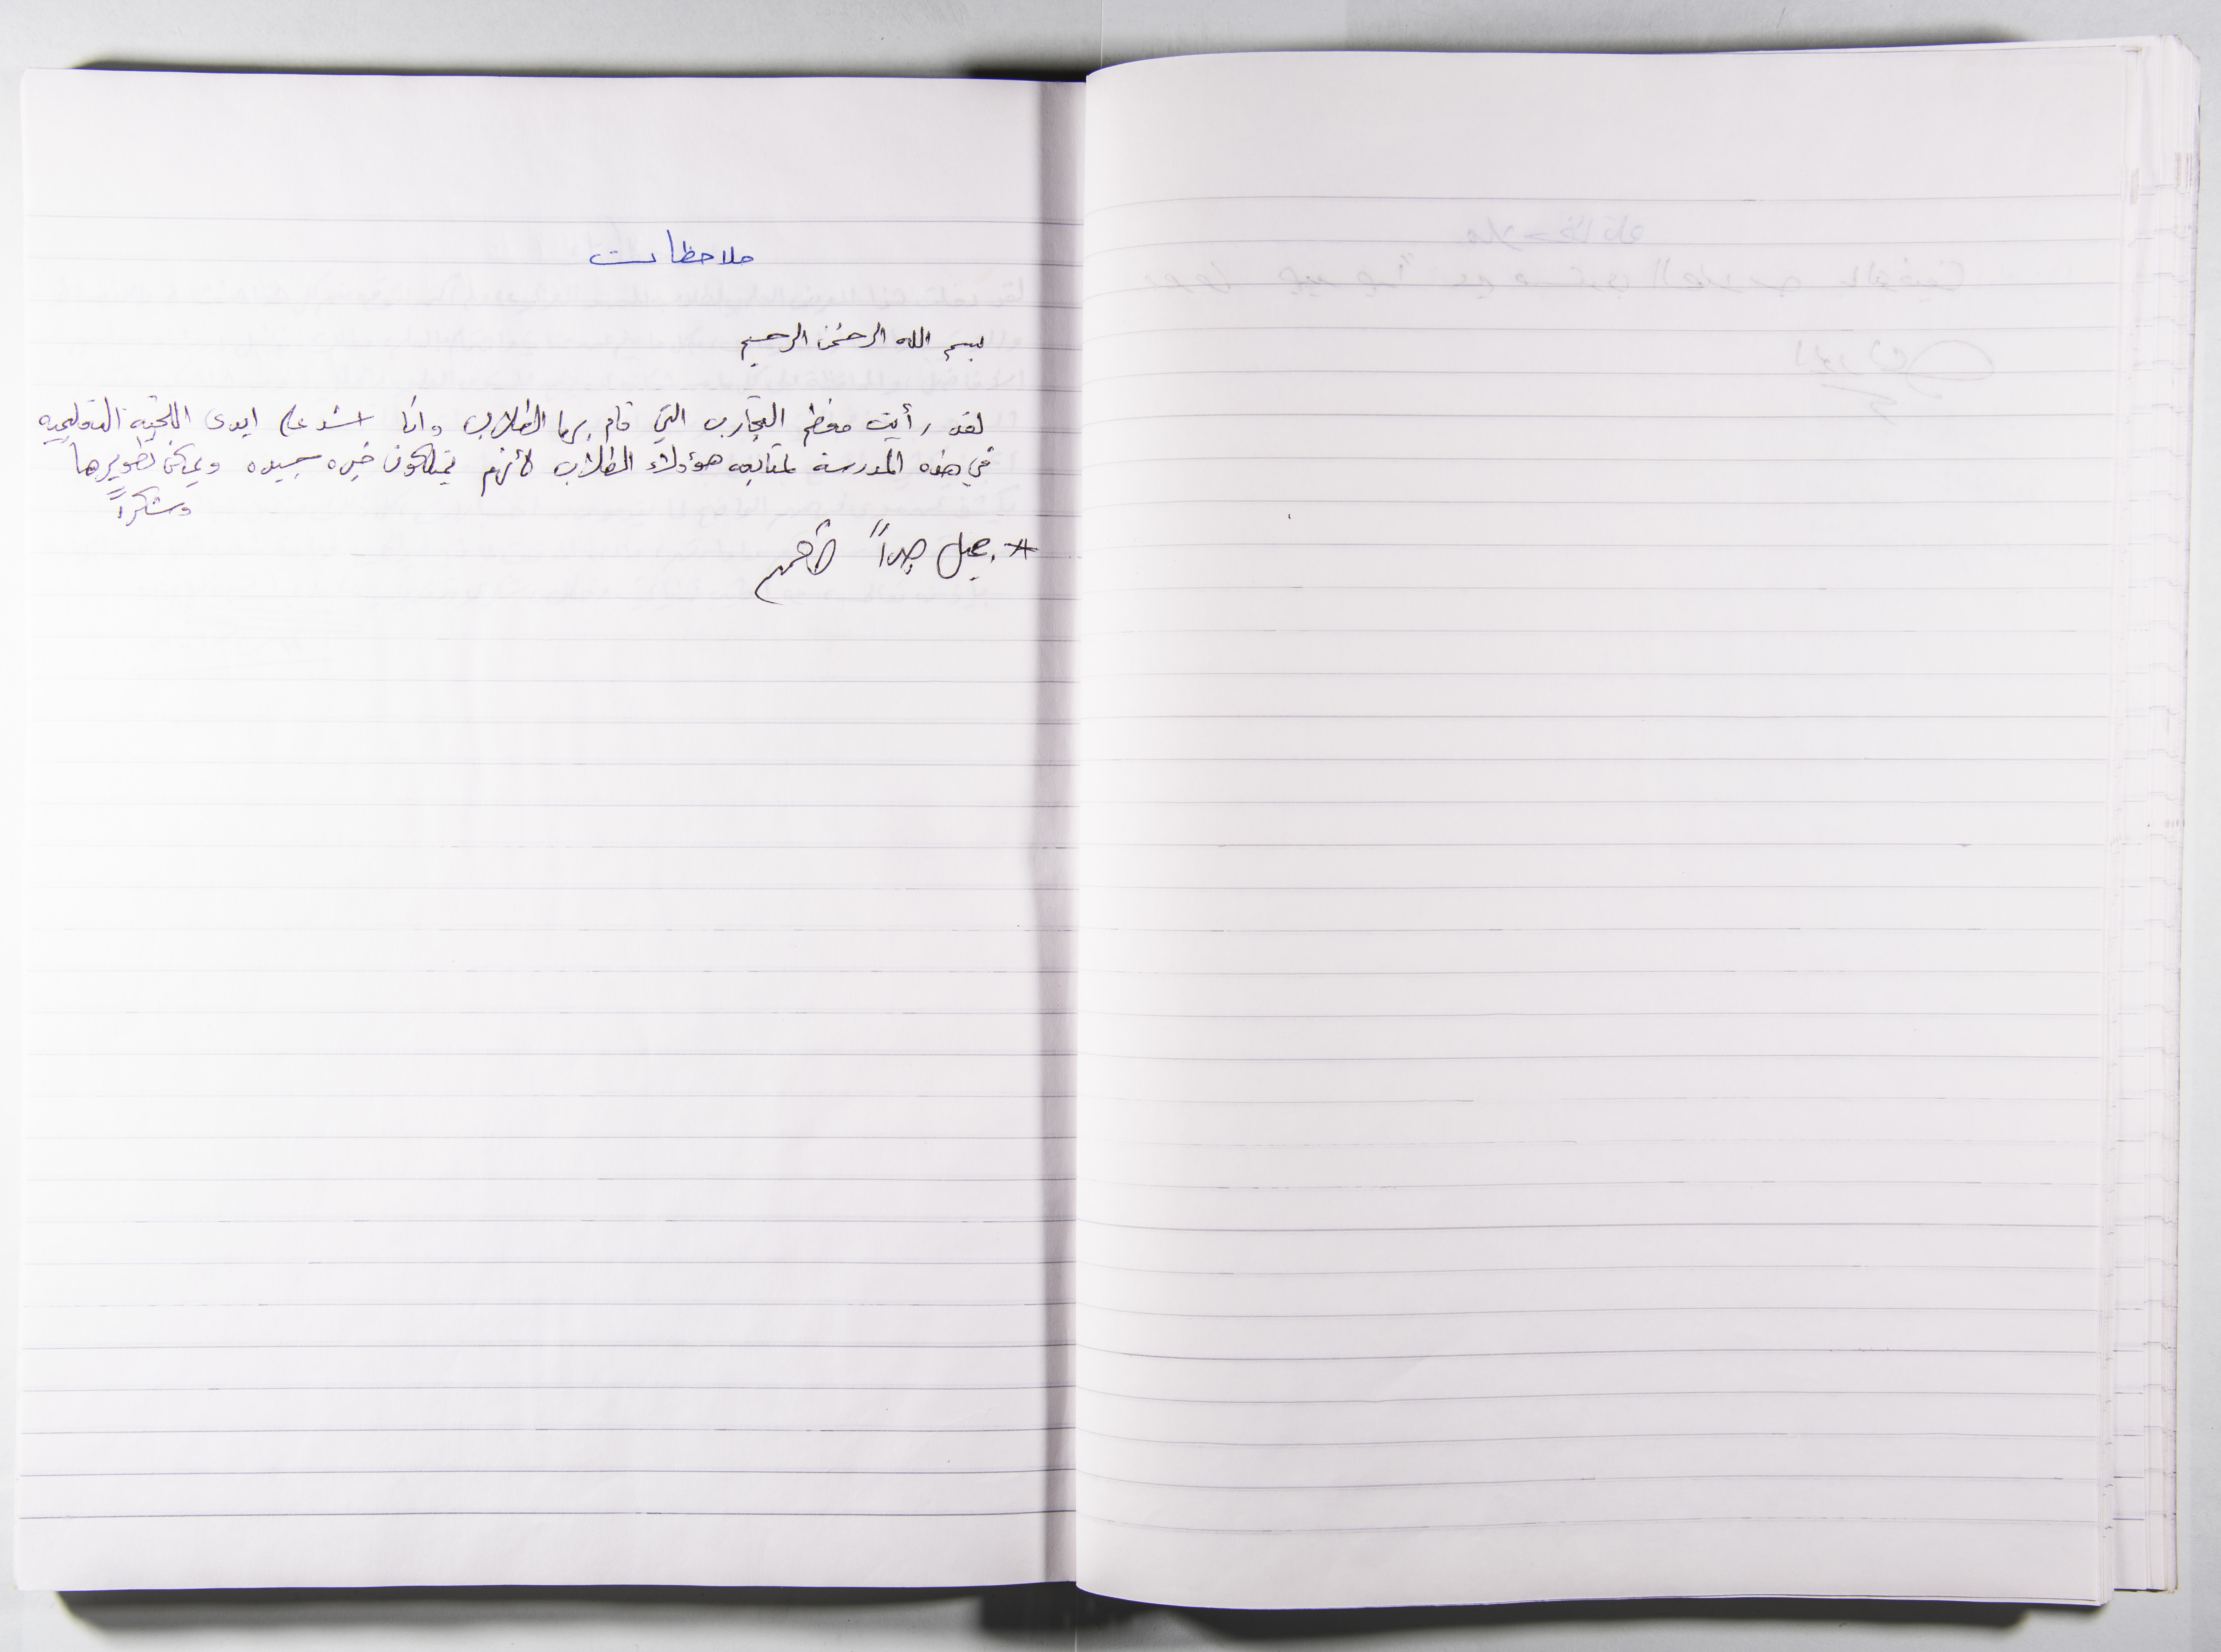 ملاحظات
بسم الله الرحمن الرحيم
لقد رأيت معظم التجارب التي قام بها الطلاب وانا اشد على ايدى اللجنة التعليميه
في هذه المدرسة لمتابعه هؤولاء الطلاب لأنهم يمتلكون خبره جيده ويمكن تطويرها
وشكراً
* جميل جداً